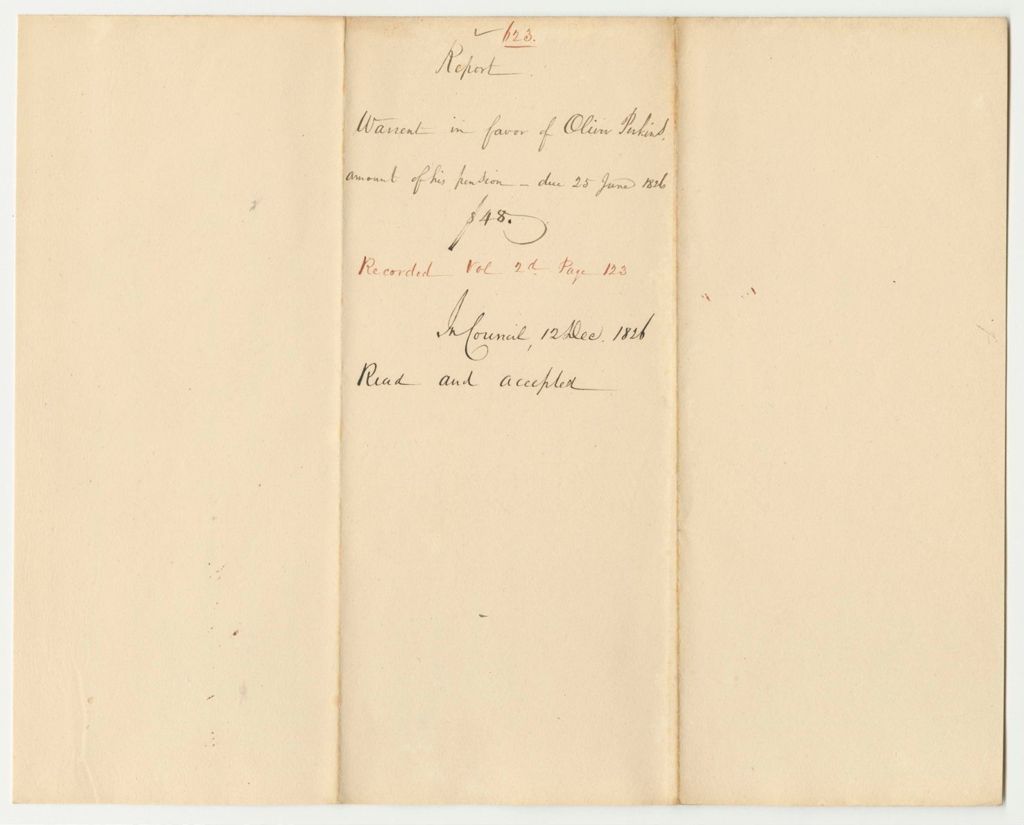 623.
Report
Warrent in favor of Oliver Perkins,
amount of his pension - due 25 June 1826
$48.
Recorded Vol 2d Page 123
In Council, 12 Dec. 1826
Read and accepted